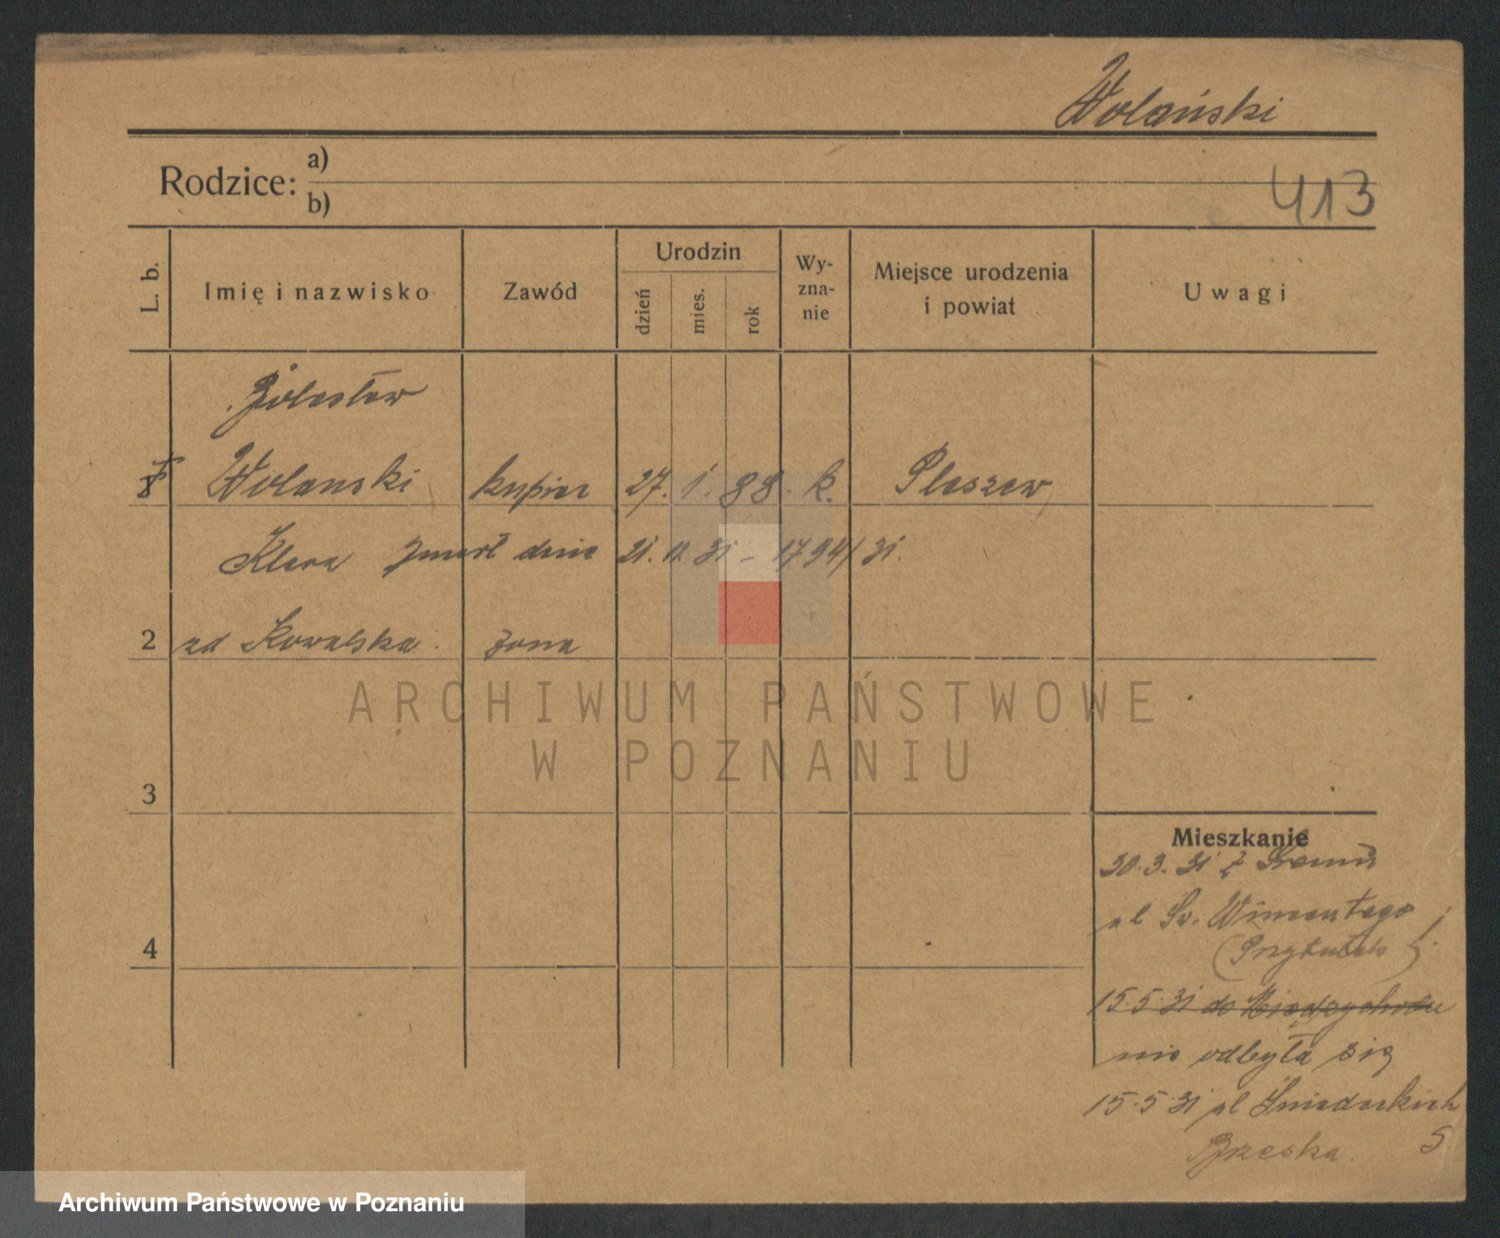 Wolański
Rodzice: a)
b)
413
L. b.
Imię i nazwisko
Zawód
Urodzin
dzień
mies.
rok
Wy-
zna-
nie
Miejsce urodzenia
i powiat
Uwagi
Bolesław
Wolanski kupiec 27. 1. 88. k. Pleszew
Klara zmarł dnia 21. 11. 31 – 1794/31.
2 zd Kowalska żona
3
4
Mieszkanie
30.3.31 z Śremu
pl Św. Wincentego
(Przytułek)
15.5.31 do Międzychodu
nie odbyła się
15.5.31 pl Śniadeckich
5
Brzeska.
ARCHIWUM PAŃSTWOWE
W POZNANIU
Archiwum Państwowe w Poznaniu